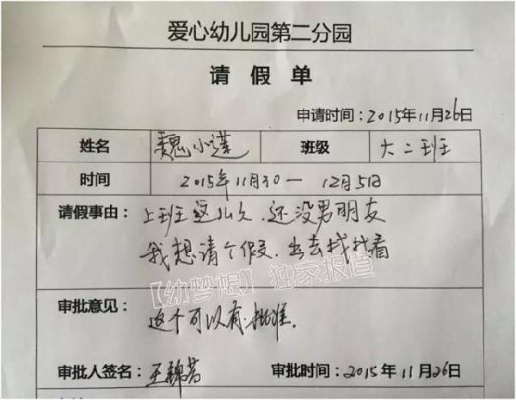 爱心幼儿园第二分园
请假单
申请时间：2015年11月26日
姓名 魏小莲 班级 大二班
时间 2015年11月30—12月5日
请假事由：上班这么久、还没男朋友
我想请个假、出去找找看
【幼梦想】独家报道
审批意见：
这个可以有.批准.
审批人签名：王 审批时间：2015年11月26日